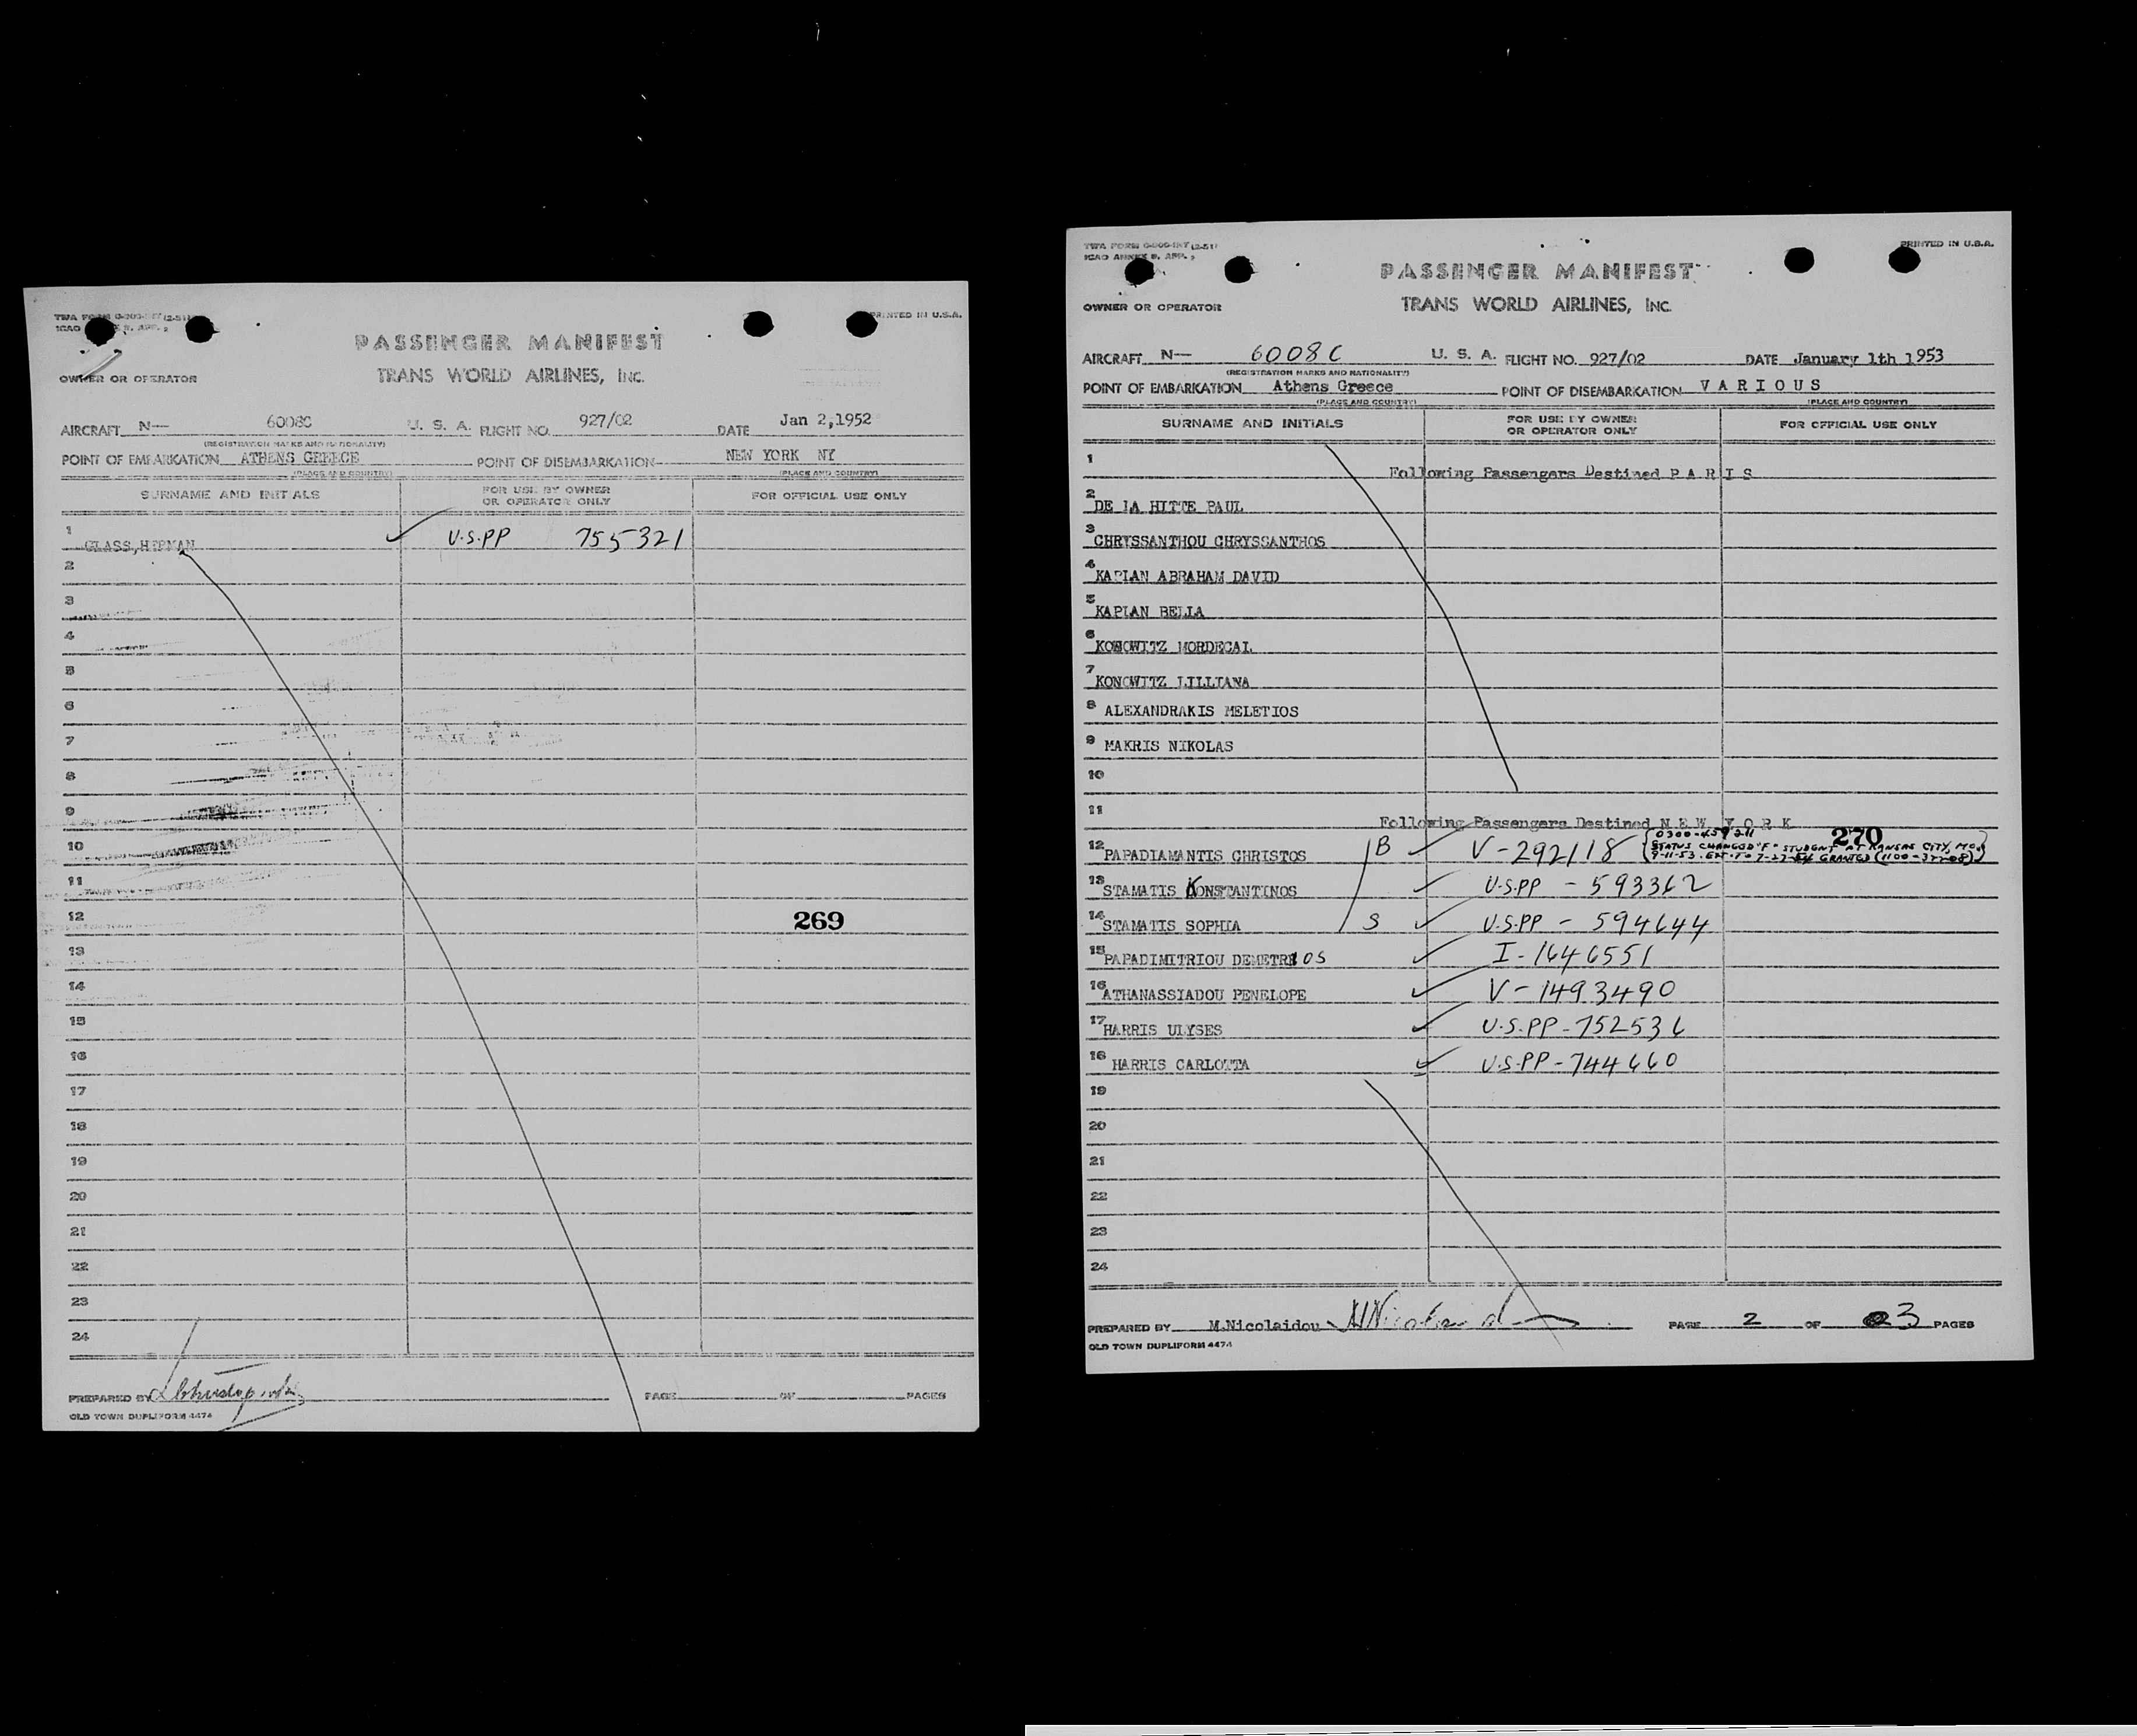 PASSENGER MANIFEST
TRANS WORLD AIRLINES, INC.
PRINTED IN U.S.A.
OWNER OR OPERATOR
AIRCRAFT N— 6008C U. S. A. FLIGHT NO. 927/02 DATE Jan 2,1952
(REGISTRATION MARKS AND NATIONALITY)
POINT OF EMBARKATION ATHENS GREECE POINT OF DISEMBARKATION NEW YORK NY
(PLACE AND COUNTRY) (PLACE AND COUNTRY)
SURNAME AND INITIALS FOR USE BY OWNER OR OPERATOR ONLY FOR OFFICIAL USE ONLY
1 GLASS,HERMAN U.S.PP 755321
2
3
4
5
6
7
8
9
10
11
12 269
13
14
15
16
17
18
19
20
21
22
23
24
PREPARED BY PAGE OF PAGES
OLD TOWN DUPLIFORM 4474
TWA FORM (2-51)
ICAO ANNEX 9, APP. PRINTED IN U.S.A.
PASSENGER MANIFEST
OWNER OR OPERATOR TRANS WORLD AIRLINES, INC.
AIRCRAFT N— 6008C U. S. A. FLIGHT NO. 927/02 DATE January 1th 1953
(REGISTRATION MARKS AND NATIONALITY)
POINT OF EMBARKATION Athens Greece POINT OF DISEMBARKATION V A R I O U S
(PLACE AND COUNTRY) (PLACE AND COUNTRY)
SURNAME AND INITIALS FOR USE BY OWNER OR OPERATOR ONLY FOR OFFICIAL USE ONLY
1 Following Passengers Destined P A R I S
2 DE LA HITTE PAUL
3 CHRYSSANTHOU CHRYSSANTHOS
4 KAPLAN ABRAHAM DAVID
5 KAPLAN BELLA
6 KONOWITZ MORDECAI
7 KONOWITZ LILLIANA
8 ALEXANDRAKIS MELETIOS
9 MAKRIS NIKOLAS
10
11 Following Passengers Destined N E W Y O R K
270
12 PAPADIAMANTIS CHRISTOS B V-292118 STATUS CHANGED "F" STUDENT AT KANSAS CITY, MO.
9-11-53. EXT. TO GRANTED
13 STAMATIS KONSTANTINOS U.S.PP - 593362
14 STAMATIS SOPHIA S U.S.PP - 594644
15 PAPADIMITRIOU DEMETRIOS I-1646551
16 ATHANASSIADOU PENELOPE V-1493490
17 HARRIS ULYSES U.S.PP-752536
18 HARRIS CARLOTTA U.S.PP-744660
19
20
21
22
23
24
PREPARED BY M.Nicolaidou PAGE 2 OF 3 PAGES
OLD TOWN DUPLIFORM 4474